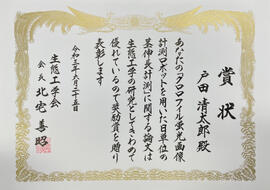 賞状
戸田 清太郎 殿
あなたの「クロロフィル蛍光画像
計測ロボットを用いた日単位の
茎伸長計測」に関する論文は
生態工学の研究としてきわめて
優れているので奨励賞を贈り
表彰します
令和三年六月二十五日
生態工学会
会長 北宅 善昭